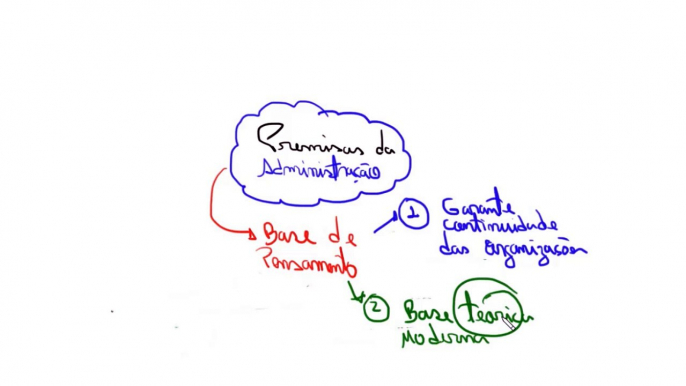 Premissas da
Administração
Base de
Pensamento
1 Garante
continuidade
das organizações
2 Base teórica
Moderna